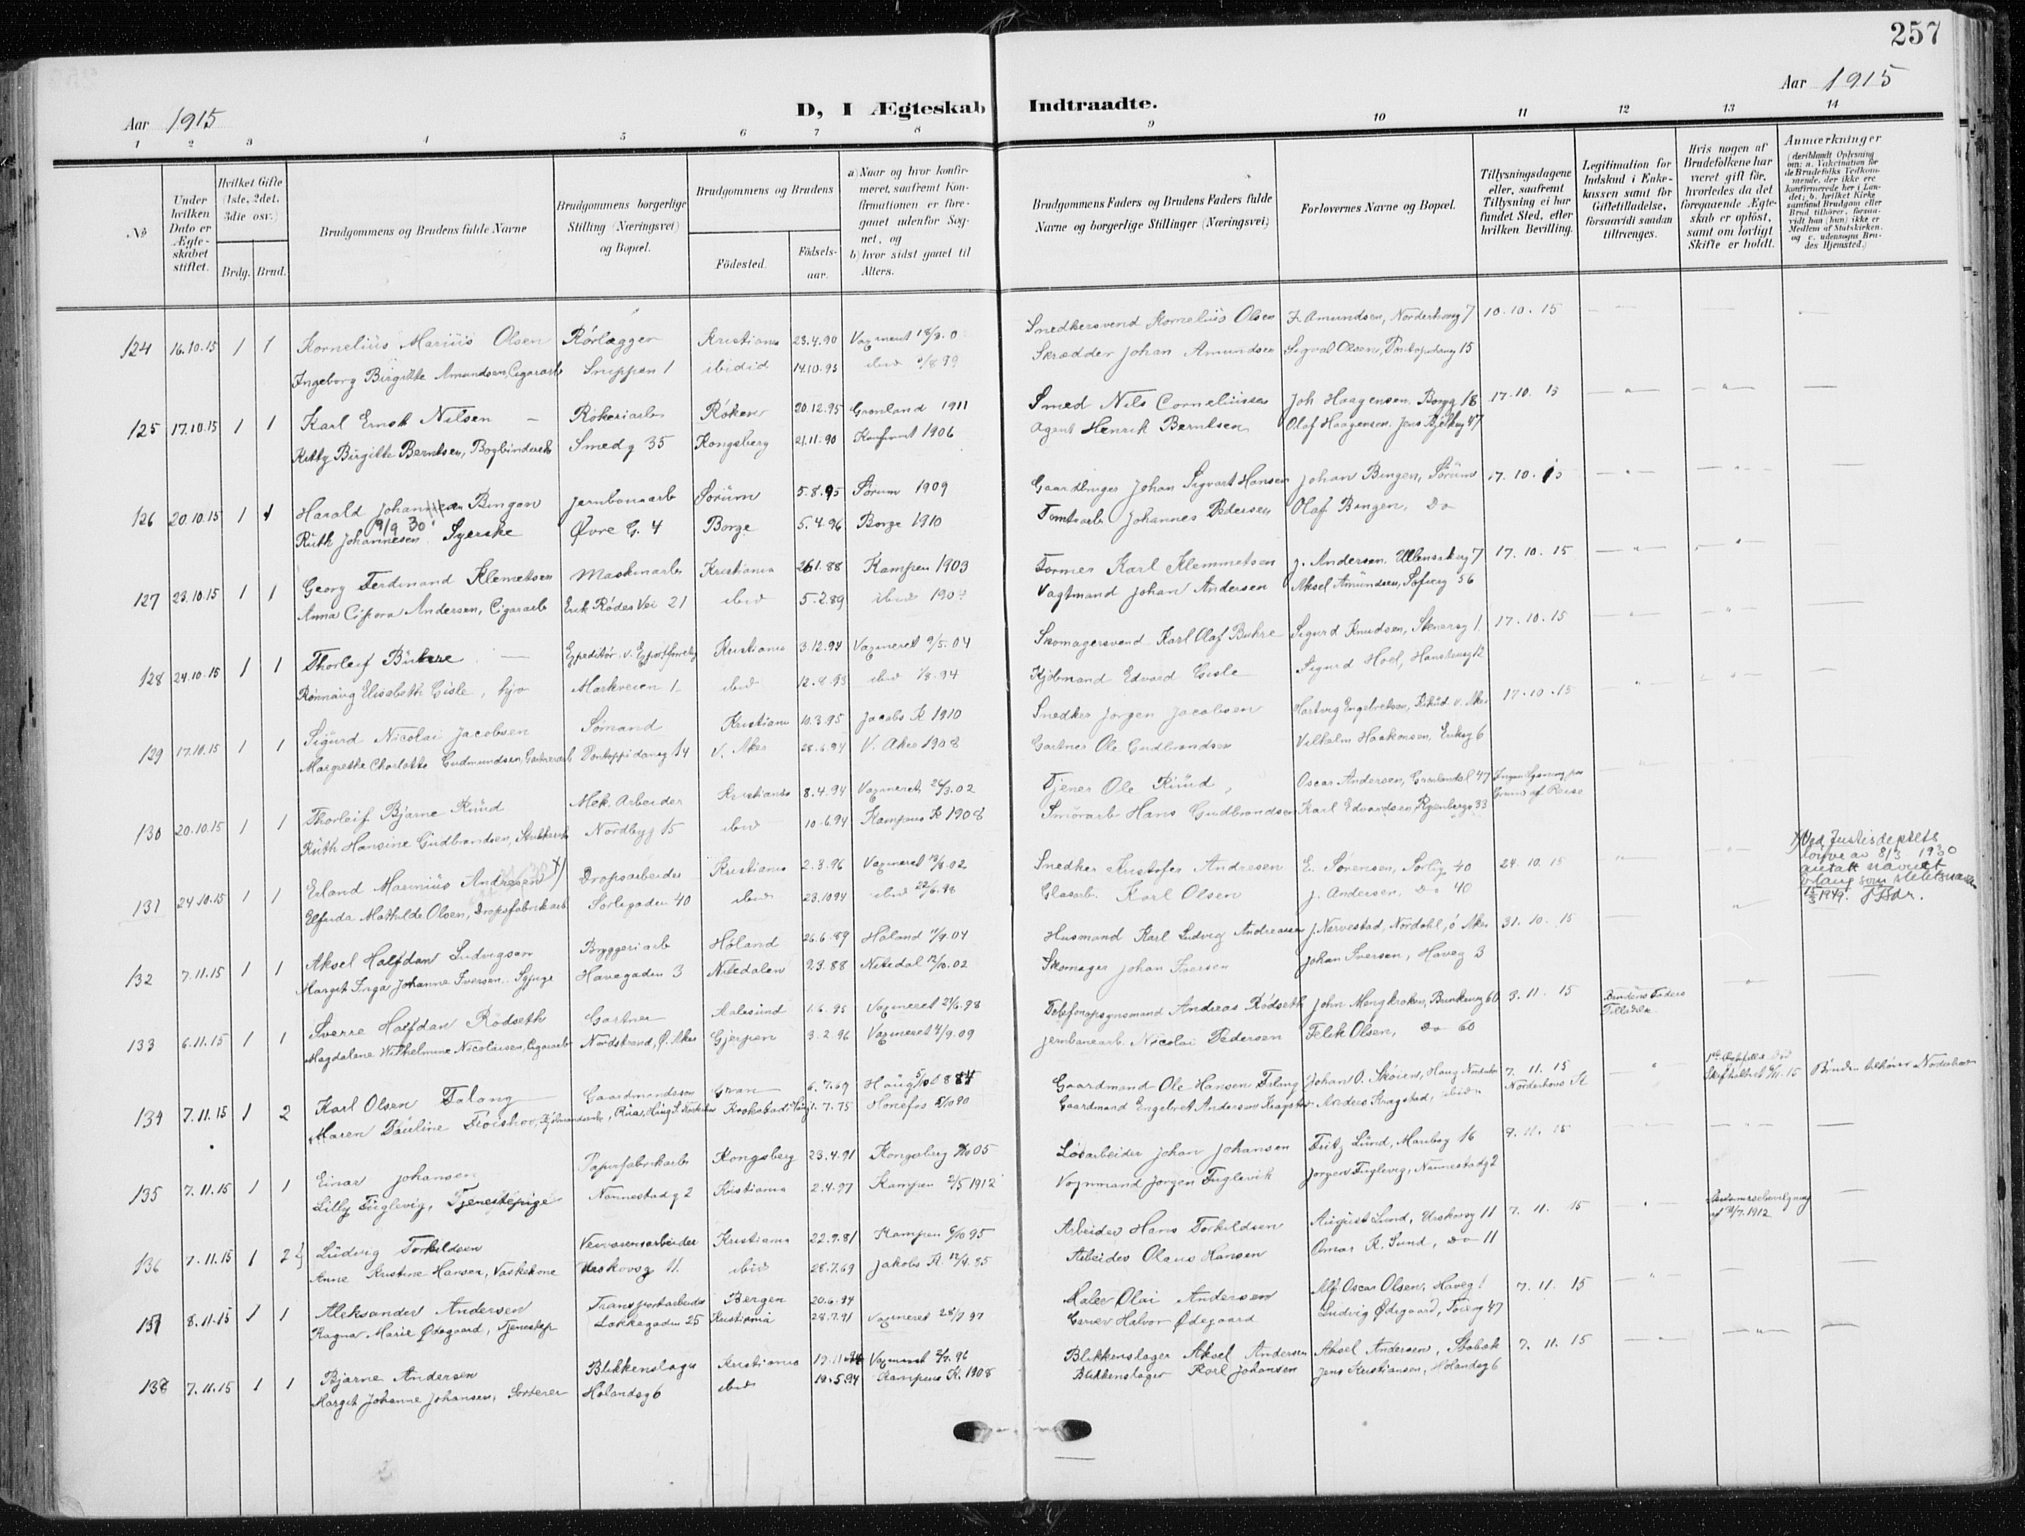 257
Aar 1915
D, I Ægteskab Indtraadte.
Aar 1915
1 2 3 4 5 6 7 8 9 10 11 12 13 14
No
Under hvilken Dato er Ægteskabet stiftet.
Hvilket Gifte (1ste, 2det, 3die osv.)
Brdg. Brud.
Brudgommens og Brudens fulde Navne
Brudgommens borgerlige Stilling (Næringsvei) og Bopæl.
Brudgommens og Brudens
Födested.
Födselsaar.
a) Naar og hvor konfirmeret, saafremt Konfirmationen er foregaaet udenfor Sognet, og
b) hvor sidst gaaet til Alters.
Brudgommens Faders og Brudens Faders fulde Navne og borgerlige Stillinger (Næringsvei)
Forlovernes Navne og Bopæl.
Tillysningsdagene eller, saafremt Tillysning ei har fundet Sted, efter hvilken Bevilling.
Legitimation for Indskud i Enkekassen samt for Giftetilladelse, forsaavidt saadan tiltrænges.
Hvis nogen af Brudefolkene har været gift för, hvorledes da det foregaaende Ægteskab er oplöst, samt om lovligt Skifte er holdt.
Anmærkninger
(deriblandt Oplysning om: a. Vakcination for de Brudefolks Vedkommende, der ikke ere konfirmerede her i Landet; b. hvilket Kirkesamfund Brudgom eller Brud tilhörer, forsaavidt han (hun) ikke er Medlem af Statskirken, og c. udensogns Brudes Hjemsted.)
124 16.10.15 1 1 Kornelius Marius Olsen Rörlægger Kristiania 23.4.90 Snedkersvend Kornelius Olsen F. Amundsen, Norderhovg 7 10.10.15
Ingeborg Birgitte Amundsen, Cigararb Snippen 1 ibidid 14.10.93 Skrædder Johan Amundsen Sigval Olsen, Pontopidansg 15
125 17.10.15 1 1 Karl Ernst Nilsen Röken 20.12.95 Grønland 1911 Smed Nils Corneliussen Joh Haagensen, Borgg 18 17.10.15
Kitty Birgitte Berntsen, Bogbinderarb Smedg 35 Kongsberg 21.11.90 1906 Agent Henrik Berntsen Olaf Haagensen, Jens Bjelkesg 47
126 20.10.15 1 1 Harald Johannesen Bingen Jernbanearb Sörum 5.8.95 Sörum 1909 Gaardbruger Johan Sigvart Hansen Johan Bingen, Sörum 17.10.15
9/9 30
Ruth Johannesen Syerske Øvre G. 4 Borge 5.4.96 Borge 1910 Tomtearb Johannes Pedersen Olaf Bingen, Do
127 23.10.15 1 1 Georg Ferdinand Klemetsen Maskinarb Kristiania 26.1.88 Kampen 1903 Former Karl Klemmetsen J. Andersen, Ullensakerg 7 17.10.15
Anna Andersen, Cigararb Erik Rödes Vei 21 ibid 5.2.89 ibid 1904 Vagtmand Johan Andersen Aksel Amundsen, Sofieng 56
128 24.10.15 1 1 Thorleif Buhre Kristiania 3.12.94 Vaxineret 9/5.04 Skomagersvend Karl Olaf Buhre Sigurd Knudsen, Stenersg 1 17.10.15
Rönnaug Elisabeth Gisle, Syp Markveien 1 ibid 12.9.93 ibid 1/8.94 Kjölmand Edvard Gisle Sigurd Hoel, Hanstensg 12
129 17.10.15 1 1 Sigurd Nicolai Jacobsen Sömand Kristiania 10.3.95 Jacobs K 1910 Snedker Jörgen Jacobsen Hartvig Engebretsen, v. Aker 17.10.15
Margrethe Charlotte Gudmundsen, Gartnerarb Pontoppidansg 14 V. Aker 28.6.94 V. Aker 1908 Gartner Ole Gudbrandsen Vilhelm Haakonsen, Eriksg 6
130 20.10.15 1 1 Thorleif Bjarne Ruud Mek. Arbeider Kristiania 8.4.94 Vaxineret 26/3.02 Tjener Ole Ruud Oscar Andersen, Grønlandsl 47 Ingen Lysning paa Grund af Reise
Ruth Hansine Gudbrandsen, Nordbyg 15 ibid 10.6.94 Kampens K 1908 Smörarb Hans Gudbrandsen Karl Edvardsen, Ryenbergv 33
131 24.10.15 1 1 Erland Marinius Andresen x) Dropsarbeider Kristiania 2.3.96 Vaxineret 12/8.02 Snedker Kristofer Andresen E. Sörensen, Sörlig 40 24.10.15
Elfrida Mathilde Olsen, Dropsfabrikarb Sörligaden 40 ibid 23.10.94 ibid 22/6.98 Glasarb. Karl Olsen J. Andersen, Do 40
x) Ved Justisdeptets
lovfve av 8/3 1930
antatt navnet
Erland som slektsnavn
15/3 1949.
132 7.11.15 1 1 Aksel Halfdan Ludvigsen Bryggeriarb Höland 26.6.89 Höland 1/9.04 Husmand Karl Ludvig Andreassen J. Nervestad, Nordahl, ö Aker 31.10.15
Margit Inga Johanne Iversen, Sypige Havegaden 3 Nitedalen 2.3.88 Nitedal 12/10.02 Skomager Johan Iversen Johan Iversen, Haveg 3
133 6.11.15 1 1 Sverre Halfdan Rödseth Gartner Aalesund 1.6.95 Vaxineret 21/6.98 Telefonopsynsmand Andreas Rödseth John Mengkroken, Bunkeng 60 3.11.15 Brudens Faders Tilladelse
Magdalene Wilhelmine Nicolaisen, Cigararb Nordstrand, Ø. Aker Gjerpen 3.2.96 Vaxineret 4/9.09 Jernbanearb. Nicolai Pedersen Felik Olsen, Do 60
134 7.11.15 1 2 Karl Olsen Falang Gaardmandssön Gran 6.7.69 Haug 5/10 1884 Gaardmand Ole Hansen Falang Johan O. Skøien, Haug Norderhov 7.11.15 Norderhovs K Skifteattest 6/11.15 Bruden tilhører Norderhov
Maren Pauline Froishov, 1.7.75 Hönefos 5/10 90 Gaardmand Engebret Andersen Kragstad Anders Kragstad, ibid
135 7.11.15 1 1 Einar Johansen Papirfabrikarb Kongsberg 23.4.91 Kongsberg 05 Lösarbeider Johan Johansen Fritz Lund, Maribog 16 7.11.15
Lilly Fuglevig, Tjenestepige Nannestadg 2 Kristiania 2.4.97 Kampen 2/5 1912 Vognmand Jörgen Fuglevik Jörgen Fuglevig, Nannestadg 2
136 7.11.15 1 2 Ludvig Torkildsen Kristiania 22.9.81 Kampen 6/10 95 Arbeider Hans Torkildsen August Lund, Urskovsg 11 7.11.15 Separationsbevilgning af 3/7.1912
Anne Kristine Hansen, Vaskekone Urskovsg 11. ibid 28.7.69 Jakobs K. 12/4.85 Arbeider Olaus Hansen Omar K. Lund, Do 11
137 8.11.15 1 1 Aleksander Andersen Transportarbeider Bergen 20.6.94 Maler Olai Andersen Alf Oscar Olsen, Haveg 1 7.11.15
Ragna Marie Ødegaard, Tjenestep Lakkegaden 25 Kristiania 28.7.91 Vaxineret 28/7 97 Garver Halvor Ødegaard Ludvig Ødegaard, Töieng 47
138 7.11.15 1 1 Bjarne Andersen Blikkenslager Kristiania 19.11.94 Vaxineret 96 Blikkenslager Aksel Andersen Aksel Andersen, Stabæk 7.11.15
Margit Johanne Johansen, Sorterer Hölandsg 6 ibid 10.5.94 Kampens K. 1908 Blikkenslager Karl Johansen Jens Kristiansen, Hölandsg 6